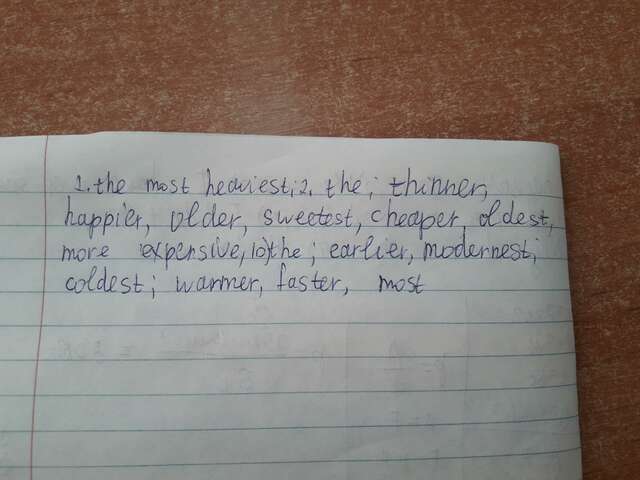 1. the most heaviest; 2. the; thinner,
happier, older, sweetest, cheaper, oldest,
more expensive, 10) the; earlier, modernest;
coldest; warmer, faster, most